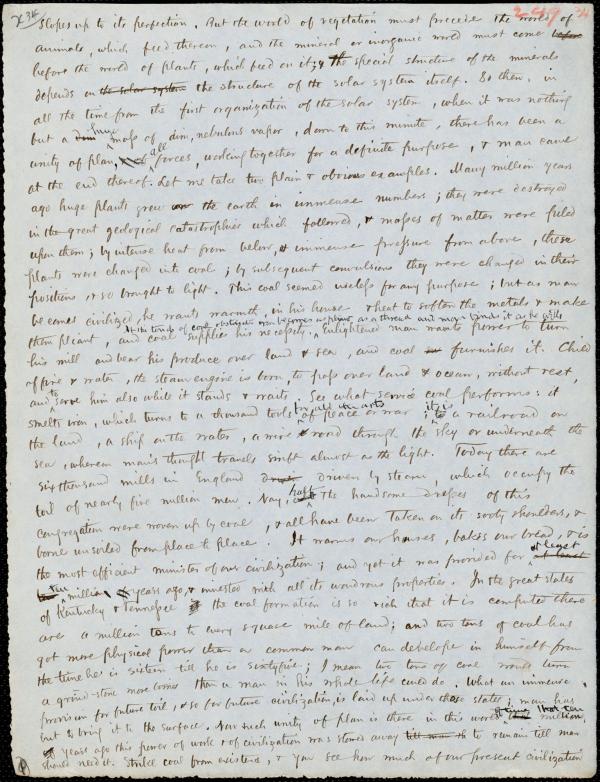 x 34 slopes up to its perfection. But the world of vegetation must precede the world of 249 34
animals, which feed thereon, and the mineral or inorganic world must come before
before the world of plants, which feed on it; & the special structure of the minerals
depends on the solar system the structure of the solar system itself. So then, in
all the time from the first organization of the solar system, when it was nothing
but a dim huge mass of dim, nebulous vapor, down to this minute, there has been a
unity of plan, all forces, working together for a definite purpose, & man came
at the end thereof. Let me take two plain & obvious examples. Many million years
ago huge plants grew on the earth in immense numbers; they were destroyed
in the great geological catastrophies which followed, & masses of matter were piled
upon them; by intense heat from below, & immense pressure from above, these
plants were changed into coal; by subsequent convulsions they were changed in their
positions & so brought to light. This coal seemed useless for any purpose; but as man
becomes civilized, he wants warmth in his house & heat to soften the metals & make
At the touch of coal obstinate iron becomes as pliant as a thread and man binds it as he will
them pliant, and coal supplies his necessity. Enlightened man wants power to turn
his mill and bear his produce over land & sea, and coal furnishes it. Child
of fire & water, the steam engine is born, to pass over land & ocean, without rest,
and to serve him also while it stands & waits. See what service coal performs: it
smelts iron, which turns to a thousand tools for all the arts of peace or war; it is a railroad on
the land, a ship on the water, a mere road through the sky or underneath the
sea, whereon man's thought travels swift almost as the light. Today there are
six thousand mills in England driven by steam, which occupy the
toil of nearly five million men. Nay, half the handsome dresses of this
congregation were woven up by coal, & all have been taken on its sooty shoulders, &
borne unsoiled from place to place. It warms our houses, bakes our bread, & is
the most efficient minister of our civilization; and yet it was provided for at least
ten million years ago, & invested with all its wondrous properties. In the great states
of Kentucky & Tennessee the coal formation is so rich that it is computed there
are a million tons to every square mile of land; and two tons of coal has
got more physical power than a common man can develope in himself from
the time he is sixteen till he is sixtyfive; I mean two tons of coal would turn
a grind-stone more times than a man in his whole life could do. What an immense
provision for future toil, & so for future civilization, is laid up under those states; man has
but to bring it to the surface. Now such unity of plan is there in this world that ten million
years ago this power of work & of civilization was stored away till man sh to remain till man
should need it. Strike coal from existence, & you see how much of our present civilization